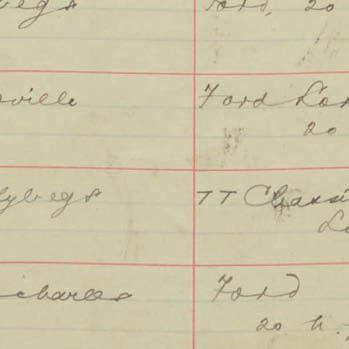 Ford, 20
ville
Ford Lor
20
lybegs
TT Chassi
charles
Ford
20 h.